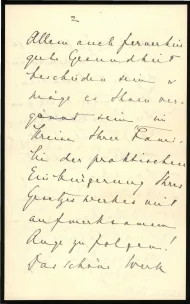 2
Allem auch fernerhin
gute Gesundheit
beschieden sein u
möge es Ihnen ver-
gönnt sein im
Kreise Ihrer Fami-
lie der praktischen
Einbürgerung Ihres
Gesetzwerkes mit
aufmerksamem
Auge zu folgen!
Das schöne Werk